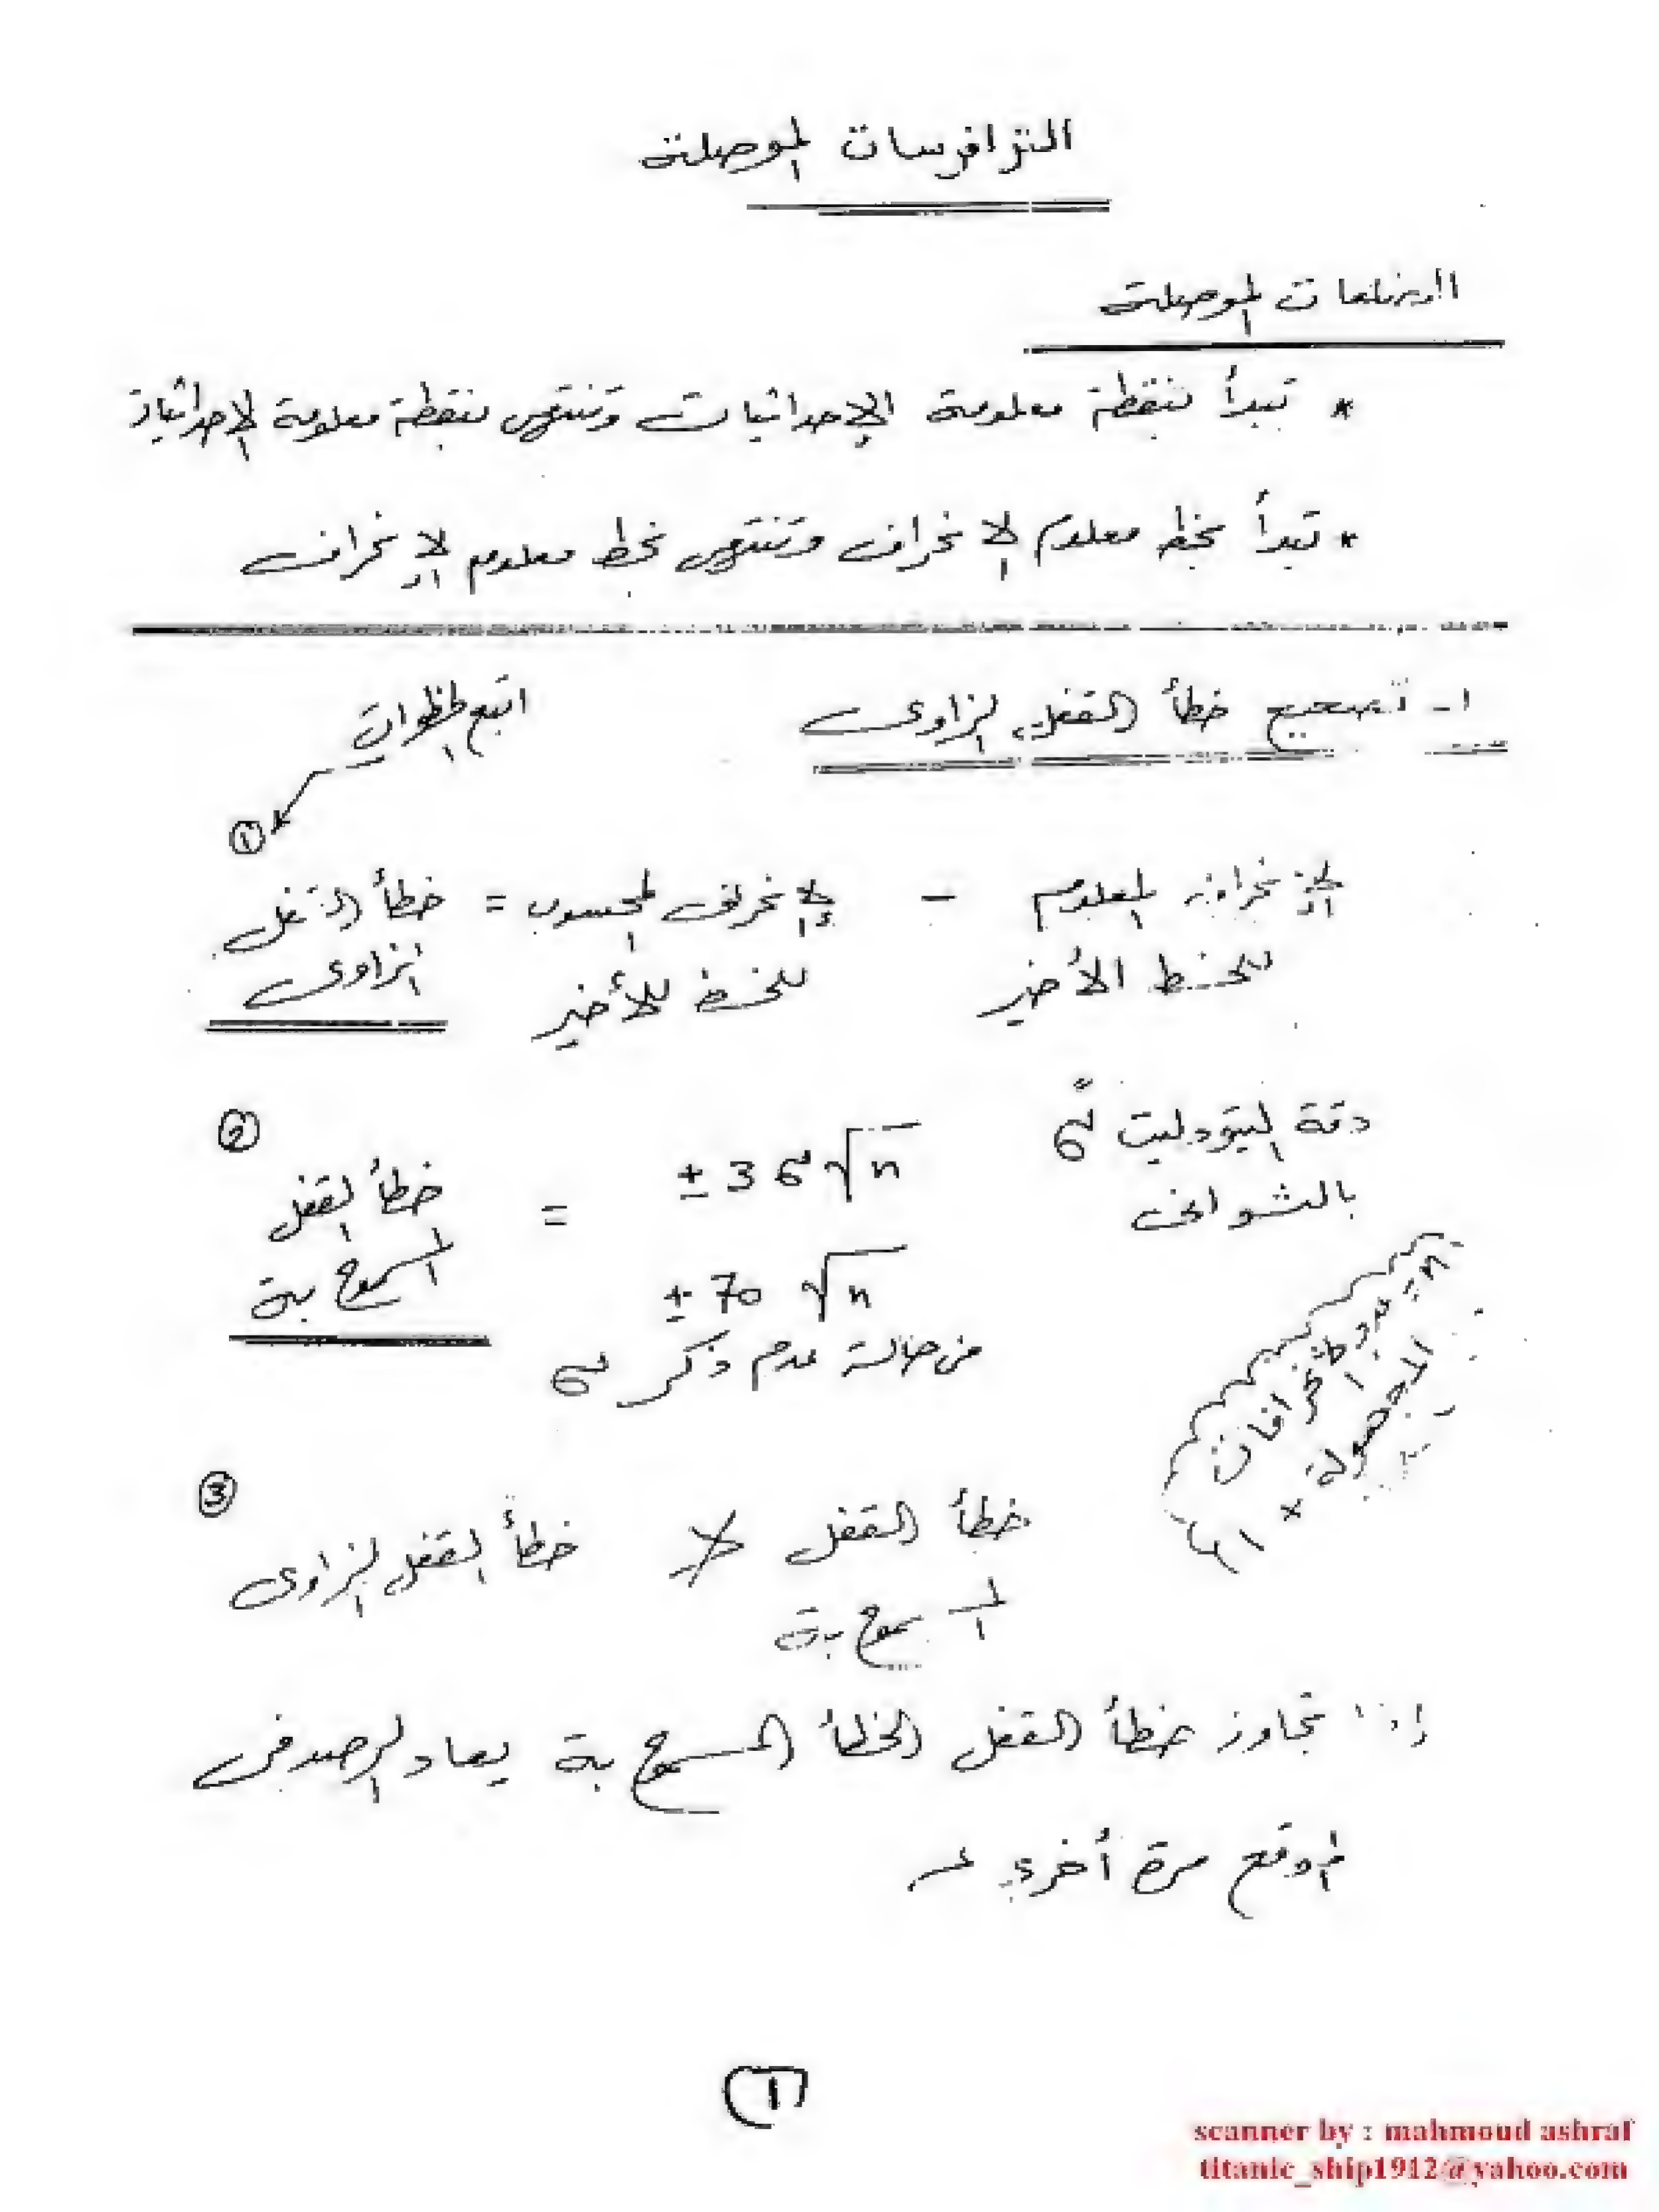 الترافرسات الموصلة
المضلعات الموصلة
* تبدأ بنقطة معلومة الإحداثيات وتنتهى بنقطة معلومة الإحداثيات
* تبدأ بخط معلوم الإنحراف وتنتهى بخط معلوم الإنحراف
١- تصحيح خطأ القفل الزاوى
اتبع الخطوات
①
خطأ القفل = الإنحراف المحسوب - الإنحراف المعلوم
الزاوى للخط الأخير للخط الأخير
②
دقة التيودليت σ"
بالثوانى
خطأ القفل = ± 3 σ √n
المسموح بة
± 70 √n
فى حالة عدم ذكر σ
n = عدد الإنحرافات
المرصودة + ١
③
خطأ القفل الزاوى ≯ خطأ القفل
المسموح بة
إذا تجاوز خطأ القفل الخطأ المسموح بة يعاد الرصد فى
الموقع مرة أخرى
(1)
scanner by : mahmoud ashraf
titanic_ship1912@yahoo.com